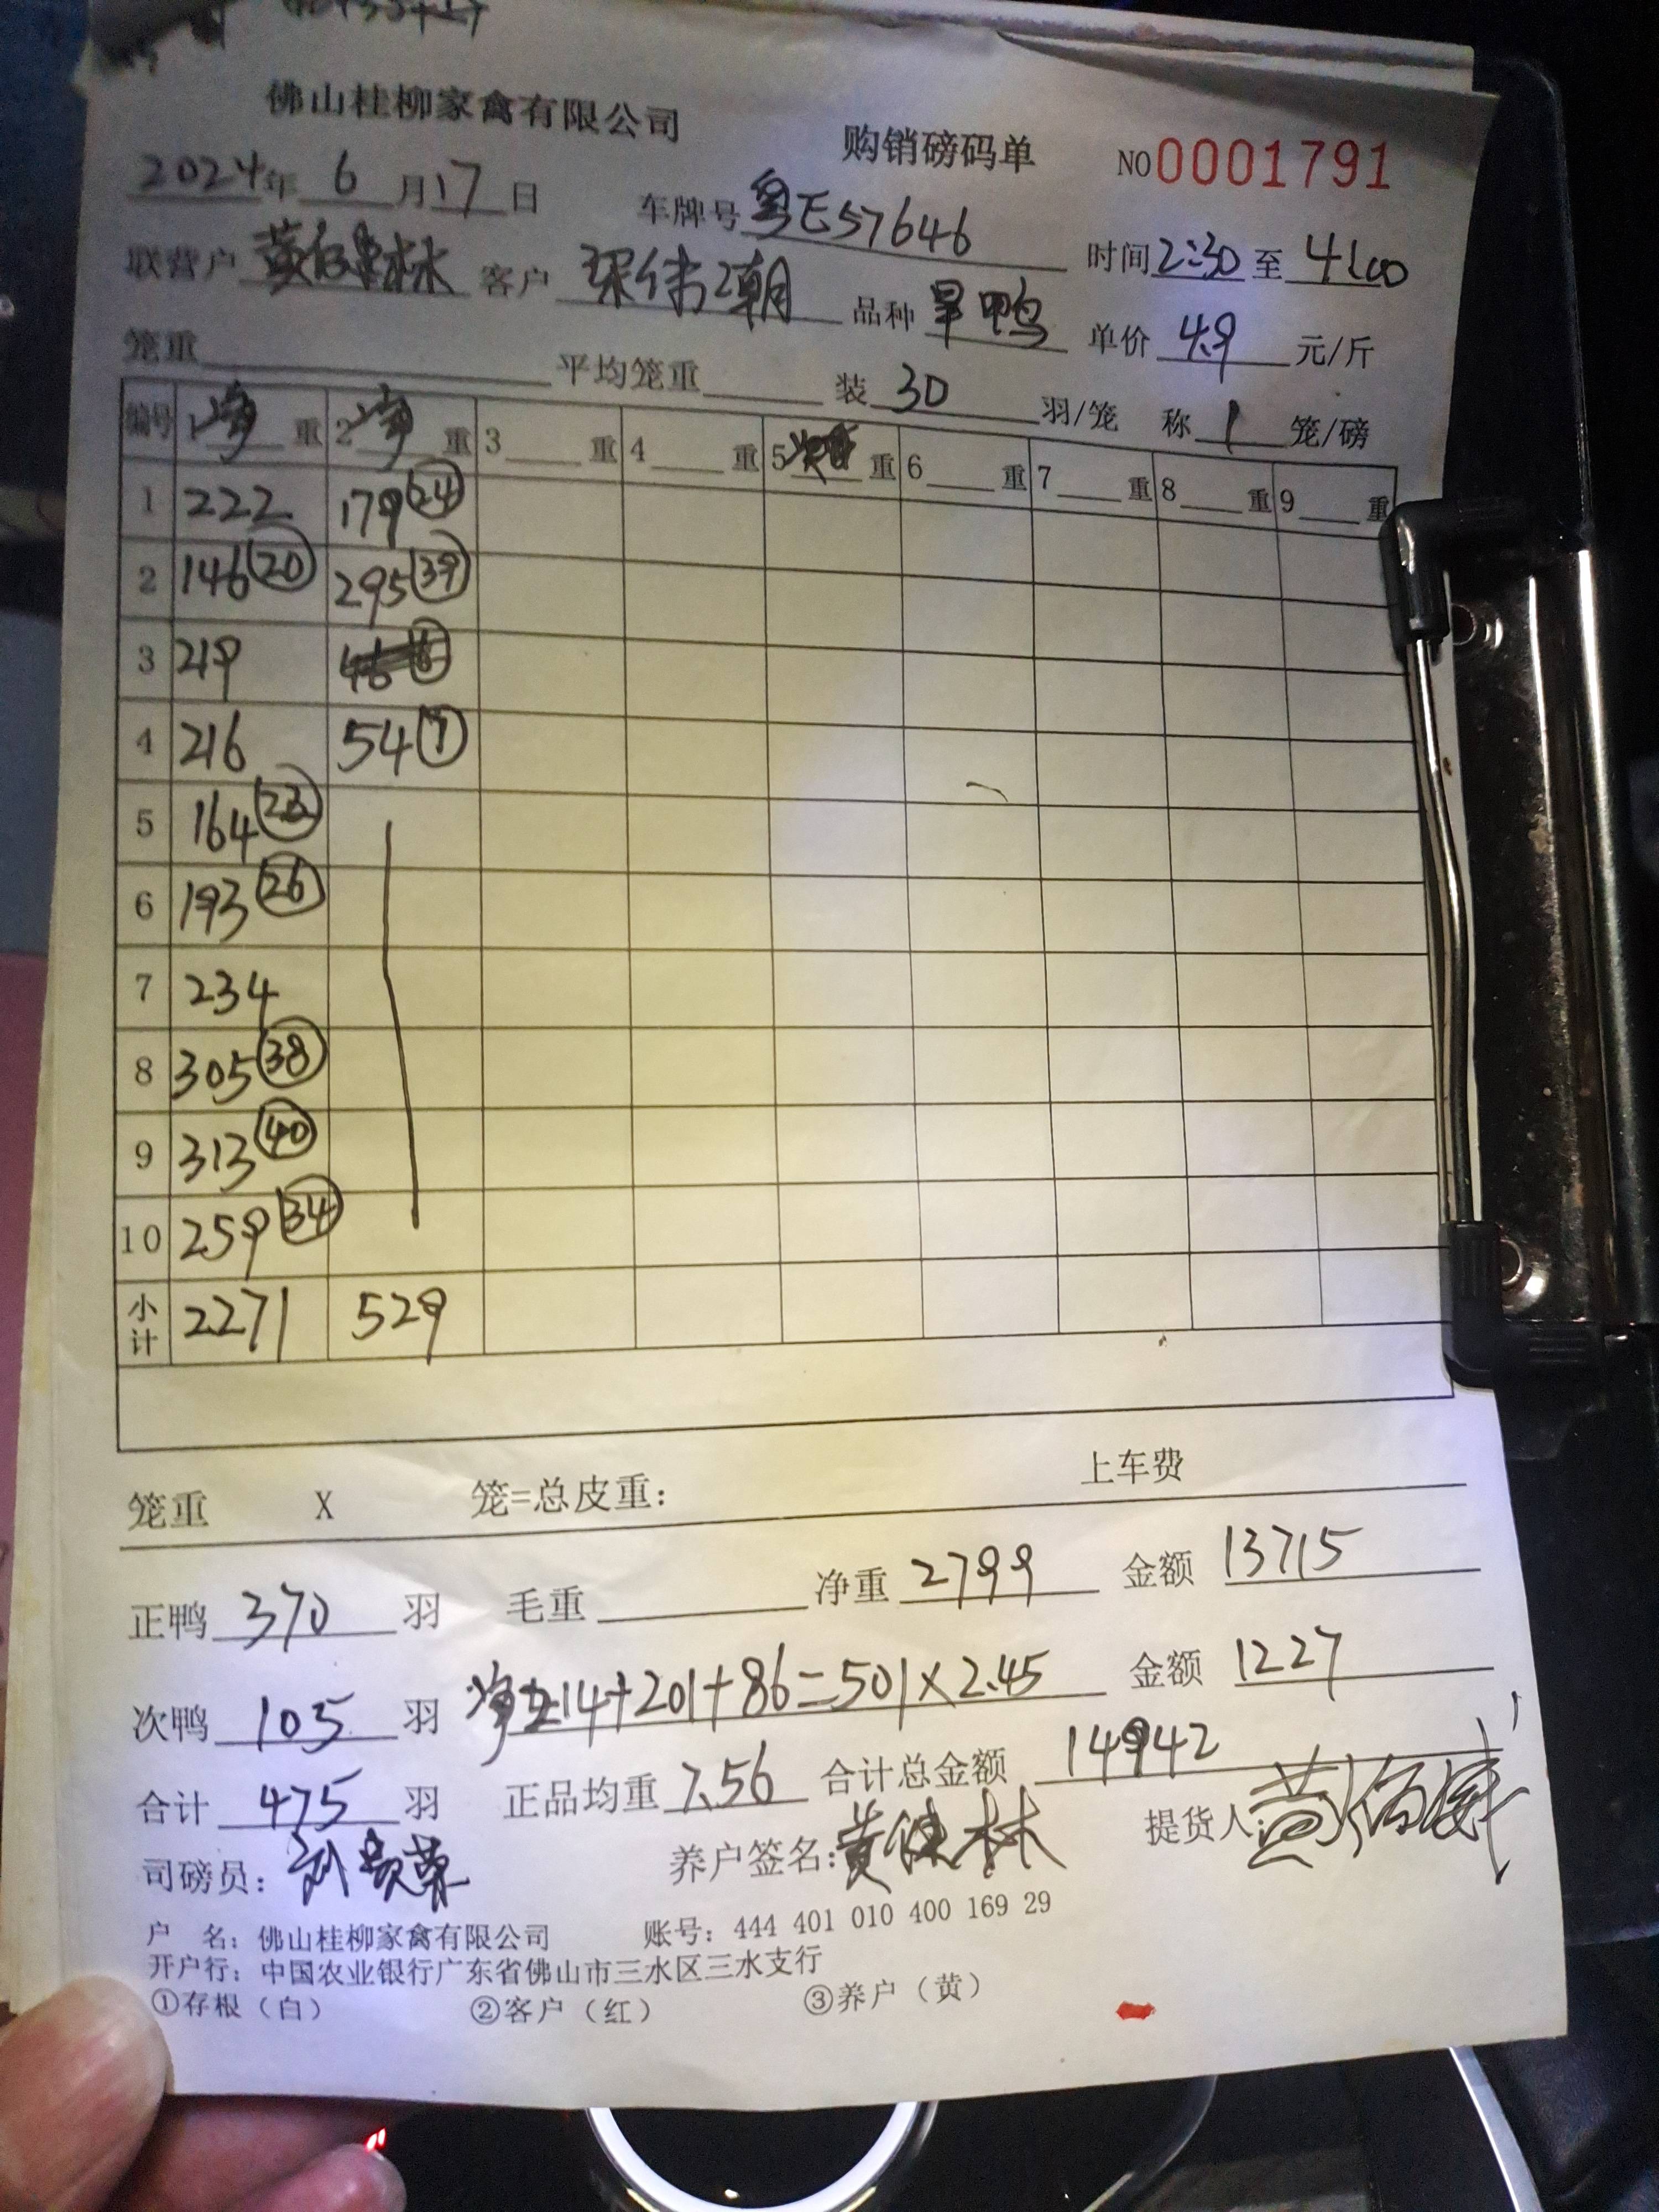 佛山桂柳家禽有限公司 购销磅码单 NO 0001791
2024年 6 月 17 日 车牌号 粤E57646 时间 2:30 至 4:00
联营户 客户 品种 旱鸭 单价 4.9 元/斤
笼重 平均笼重 装 30 羽/笼 称 1 笼/磅
编号 1 净 重 2 净 重 3 重 4 重 5 重 6 重 7 重 8 重 9 重
1 222 179 (24)
2 146 (20) 295 (39)
3 219 46 (6)
4 216 54 (7)
5 164 (23)
6 193 (26)
7 234
8 305 (38)
9 313 (40)
10 259 (34)
小计 2271 529
笼重 X 笼=总皮重: 上车费
正鸭 370 羽 毛重 净重 2799 金额 13715
次鸭 105 羽 净214+201+86=501×2.45 金额 1227
合计 475 羽 正品均重 7.56 合计总金额 14942
司磅员: 养户签名: 提货人
户 名: 佛山桂柳家禽有限公司 账号: 444 401 010 400 169 29
开户行: 中国农业银行广东省佛山市三水区三水支行
①存根（白） ②客户（红） ③养户（黄）